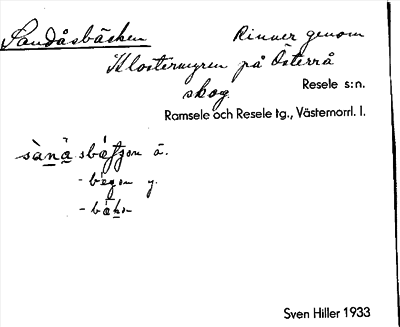 Sandåsbäcken Rinner genom
Klostermyren på Österrå
skog. Resele s:n.
Ramsele och Resele tg., Västernorrl. l.
ä.
- y.
Sven Hiller 1933